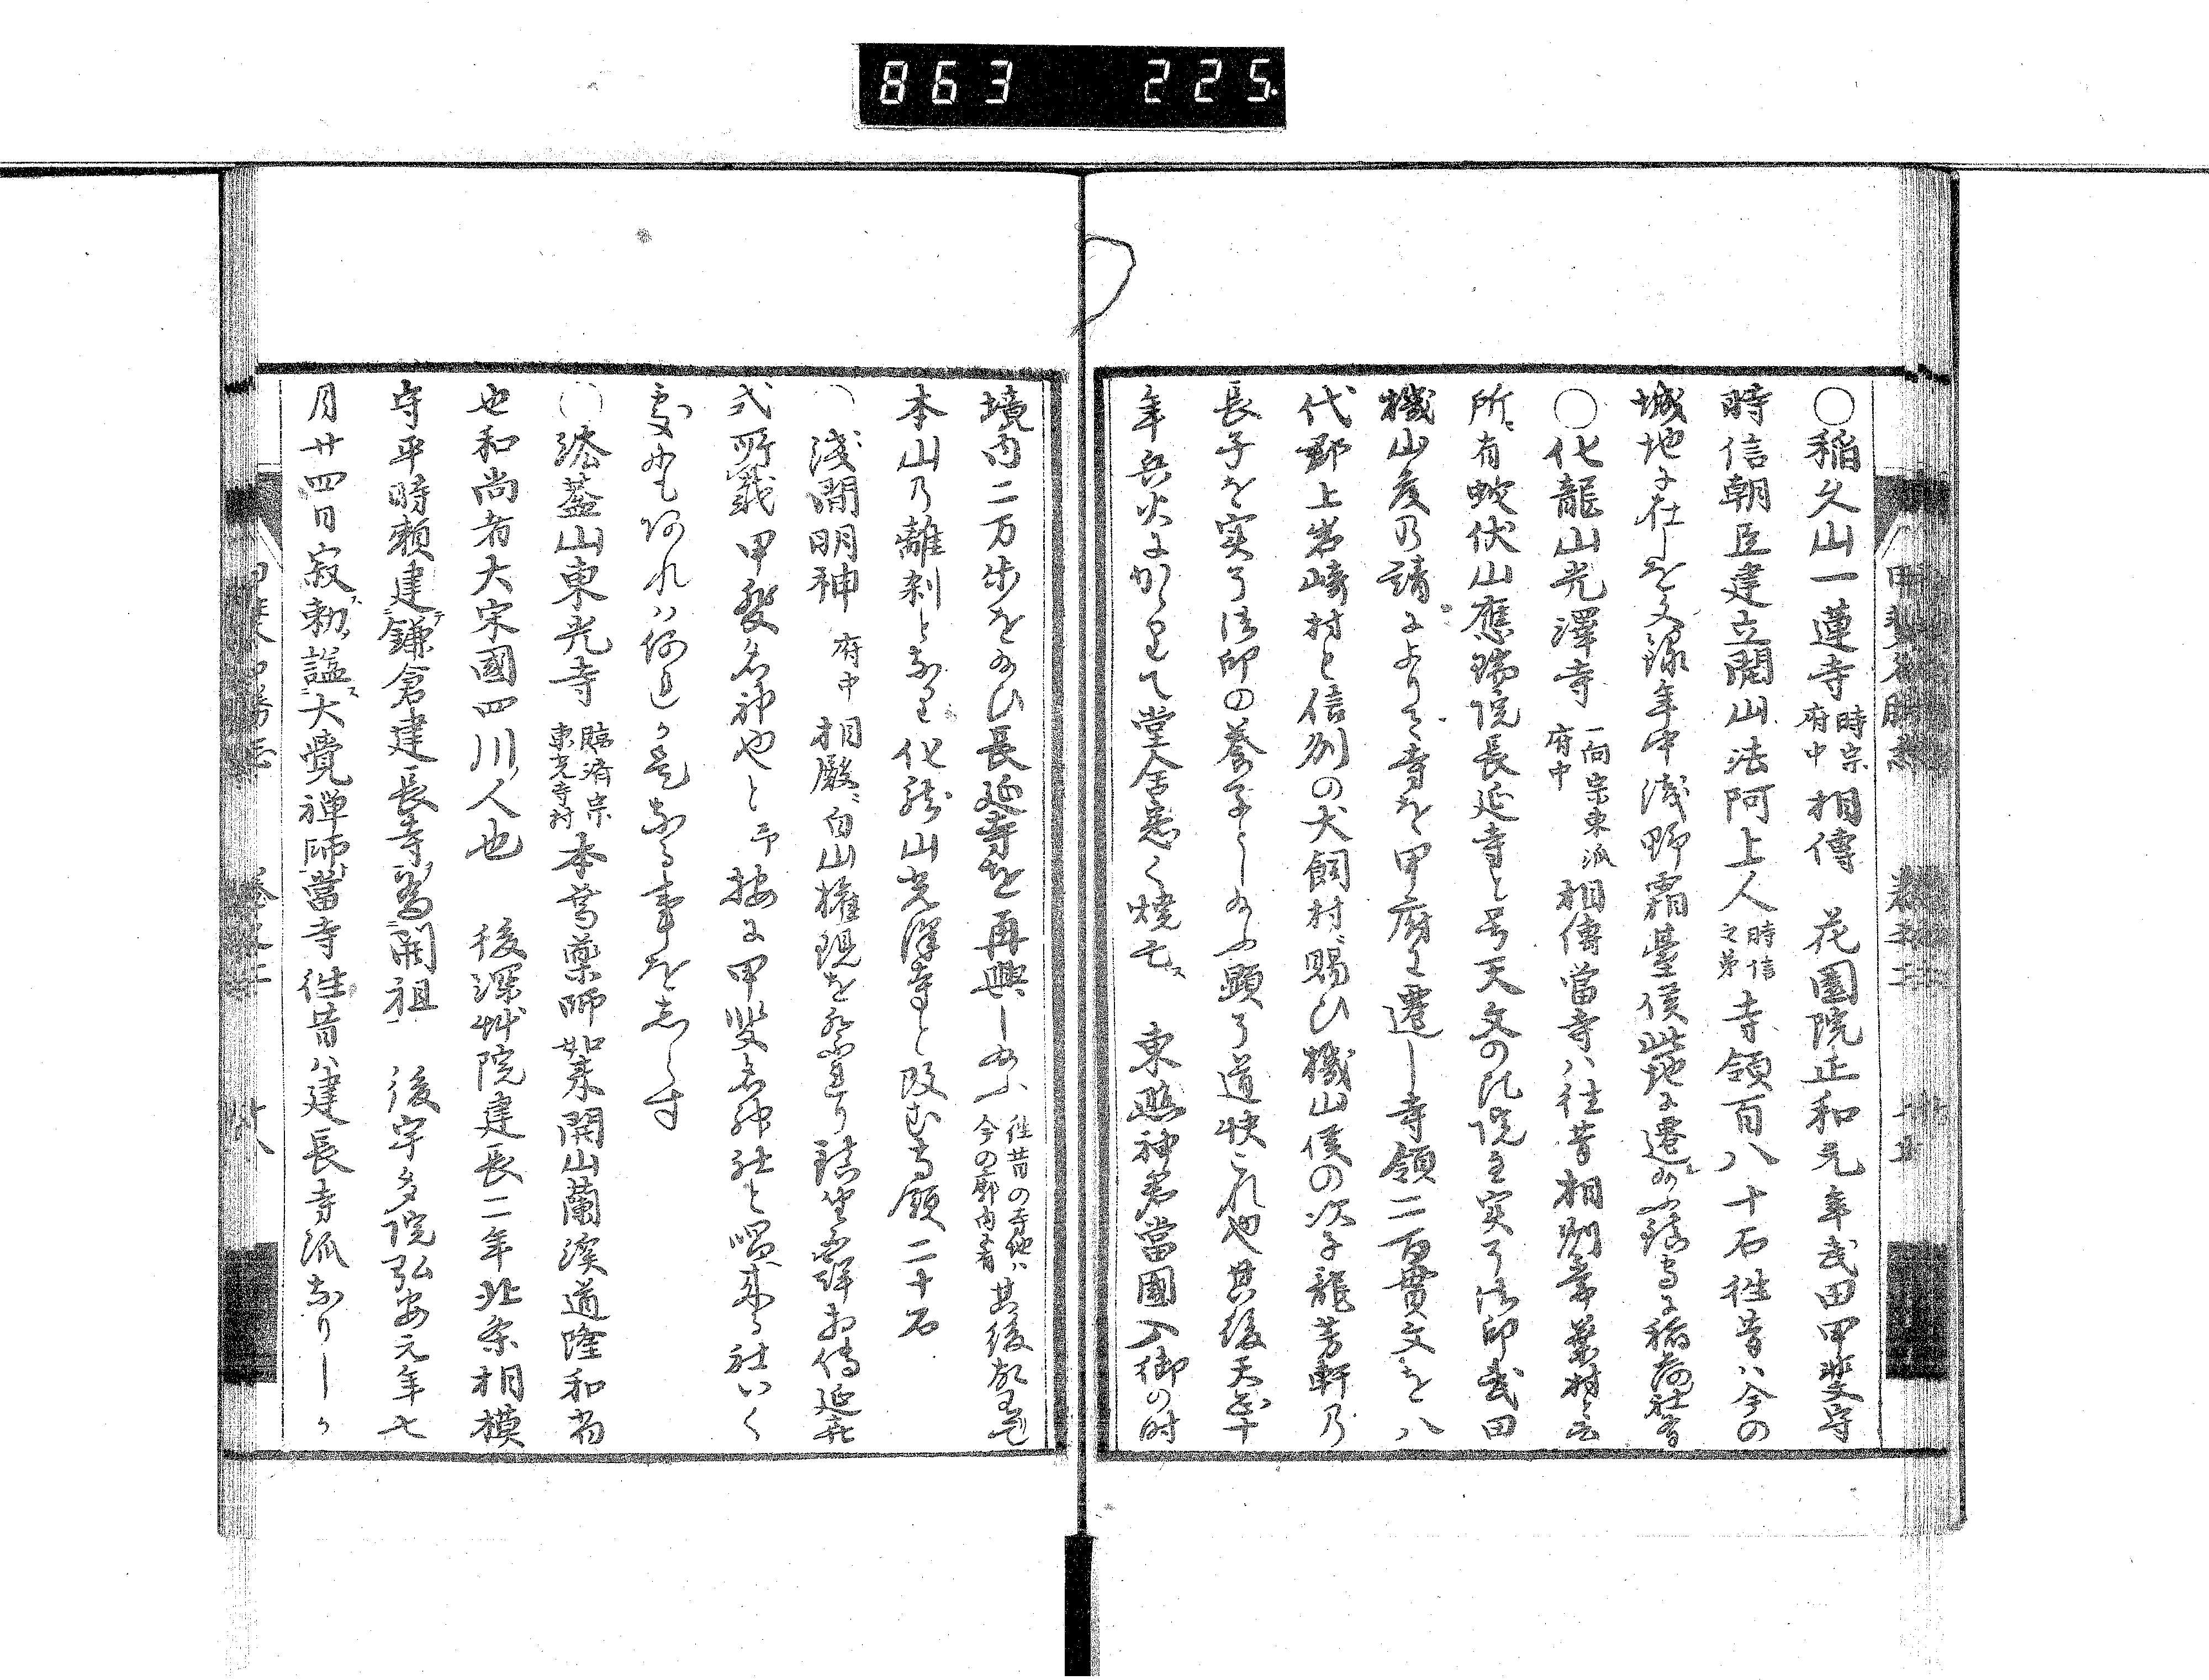 863 225.
○稲久山一蓮寺 時宗府中 相傳 花園院正和元年武田甲斐守
時信朝臣建立開山法阿上人 時信之弟 寺領百八十石徃昔ハ今の
城地に在しを文禄年中浅野霜臺侯此地に遷給ふ鎮守に稲荷社有
○化龍山光澤寺 一向宗東派府中 相傳當寺ハ往昔相州
所に有蛇伏山應瑞院長延寺と号天文の比院主実了法印武田
機山侯乃請によりて寺を甲府に遷し寺領二百貫文を八
代郡上岩崎村と信州の犬飼村に賜ひ機山侯の次子龍芳軒乃
長子を実了法印の養子とし給ふ顕了道快これ也其後天正十
年兵火にかゝりて堂舎悉く焼亡ス 東照神君當國入御の時
境内二万歩を給ひ長延寺を再興し給ふ 徃昔の寺地ハ今の郭内に有 其後故有て
本山乃離刹となり化龍山光澤寺と改む寺領二十石
○浅間明神 府中 相殿ニ白山権現を祭れり
式所載甲斐名神也と予按に甲斐奈神社と唱来る社いく
處も有れハ何れか是なる事をしらす
○法蓋山東光寺 臨済宗東光寺村 本尊薬師如来開山蘭溪道隆和尚
也和尚者大宋國四川ノ人也 後深艸院建長二年北条相模
守平時頼建鎌倉建長寺為開祖 後宇多院弘安元年七
月廿四日寂勅謚大覺禅師當寺徃昔ハ建長寺派なりしか